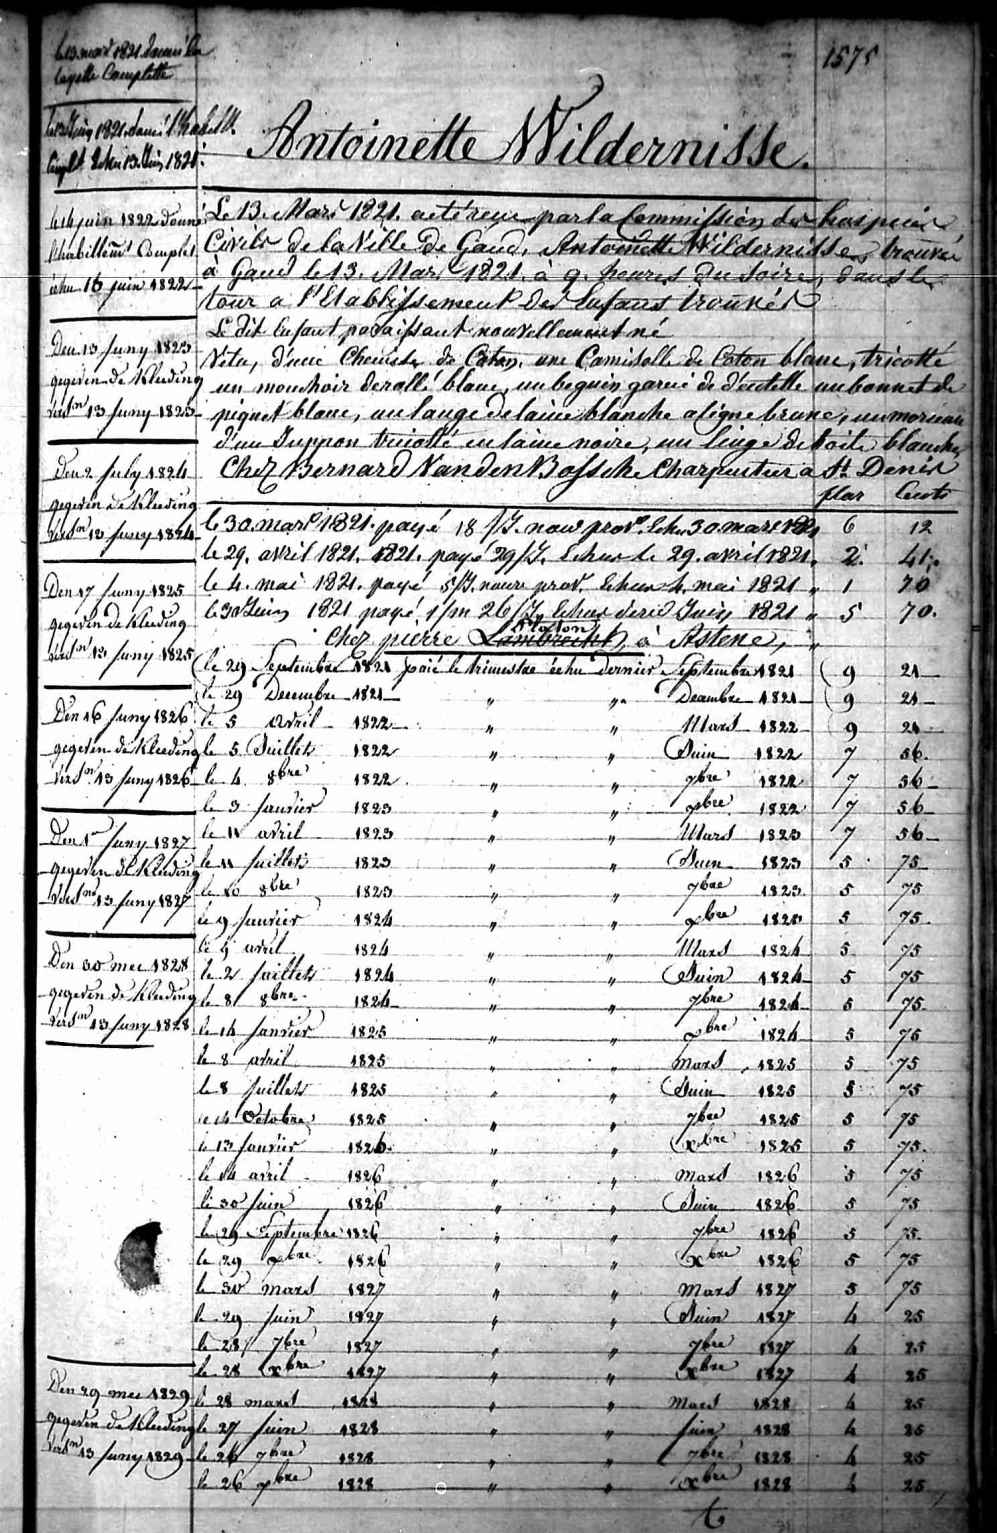 1575
Antoinette Wildernisse.
le 13 mars 1821. donné la
layette Complette
le 13 Juin 1821. donné l'habillt.
complt. echu 13 Juin 1821.
le 14 juin 1822 donné
l'habillemt Complet
échu 13 juin 1822
Den 13 Juny 1823
gegeven de Kleeding
versn 13 Juny 1823
Den 2 July 1824
gegeven de Kleeding
versn 13 Juny 1824
Den 17 Juny 1825
gegeven de Kleeding
versn 13 Juny 1825
Den 16 Juny 1826
gegeven de Kleeding
versn 13 Juny 1826
Den 1r Juny 1827
gegeven de Kleeding
versn 13 Juny 1827
Den 30 mei 1828
gegeven de Kleeding
versn 13 Juny 1828
Den 29 mei 1829
gegeven de Kleeding
versn 13 Juny 1829
Le 13. Mars 1821. a eté reçu par la Commission des hospices
Civils de la Ville de Gand, Antoinette Wildernisse, trouvée
à Gand le 13. Mars 1821. à 9. heures du Soire, dans le
tour a l'Etablissement des Enfans trouvés
Le dit Enfant paraissant nouvellement né
Vetu, d'une Chemise de Coton, une Camisolle de Coton blanc, tricotté
un mouchoir de collé blanc, un beguin garni de dentelle un bonnet de
piquet blanc, un lange de laine blanche a ligne brune, un morceau
d'un Juppon tricotté en laine noire, un linge de toile blanche,
Chez Bernard Van den Bossche Charpentier a St. Denis
flor Cents
le 30 mars 1821. payé 18 /J. nour provr. Echu 30 mars 1821 6 12
le 29. avril 1821. 1821. payé 29/J. Echus le 29. avril 1821. 2. 41.
le 4. mai 1821. payé 5/J. nour prov. Echus 4. mai 1821 " 1 70
le 30 Juin 1821 payé 1/m 26/J. Echus dernier Juin 1821 " 5 70.
Chez pierre Lambrecht, à Astene, "
le 29 Septembre 1821 paié le trimestre échu dernier Septembre 1821 9 21
le 29 Decembre 1821 " " Decembre 1821 9 21
le 5 avril 1822 " " Mars 1822 9 21
le 5 Juillet 1822 " " Juin 1822 7 56
le 4 8bre 1822 " " 7bre 1822 7 56
le 3 janvier 1823 " " xbre 1822 7 56
le 11 avril 1823 " " Mars 1823 7 56
le 11 juillet 1823 " " Juin 1823 5 75
le 10 8bre 1823 " " 7bre 1823 5 75
le 9 janvier 1824 " " xbre 1823 5 75
le 9 avril 1824 " " Mars 1824 5 75
le 2 juillet 1824 " " Juin 1824 5 75
le 8 8bre 1824 " " 7bre 1824 5 75
le 14 janvier 1825 " " xbre 1824 5 75
le 8 avril 1825 " " Mars 1825 5 75
le 8 juillet 1825 " " Juin 1825 5 75
le 14 Octobre 1825 " " 7bre 1825 5 75
le 13 janvier 1826 " " xbre 1825 5 75
le 14 avril 1826 " " Mars 1826 5 75
le 30 juin 1826 " " Juin 1826 5 75
le 29 Septembre 1826 " " 7bre 1826 5 75
le 29 xbre 1826 " " xbre 1826 5 75
le 30 mars 1827 " " Mars 1827 5 75
le 29 juin 1827 " " Juin 1827 4 25
le 28 7bre 1827 " " 7bre 1827 4 25
le 28 xbre 1827 " " xbre 1827 4 25
le 28 mars 1828 " " Mars 1828 4 25
le 27 juin 1828 " " juin 1828 4 25
le 26 7bre 1828 " " 7bre 1828 4 25
le 26 xbre 1828 " " xbre 1828 4 25